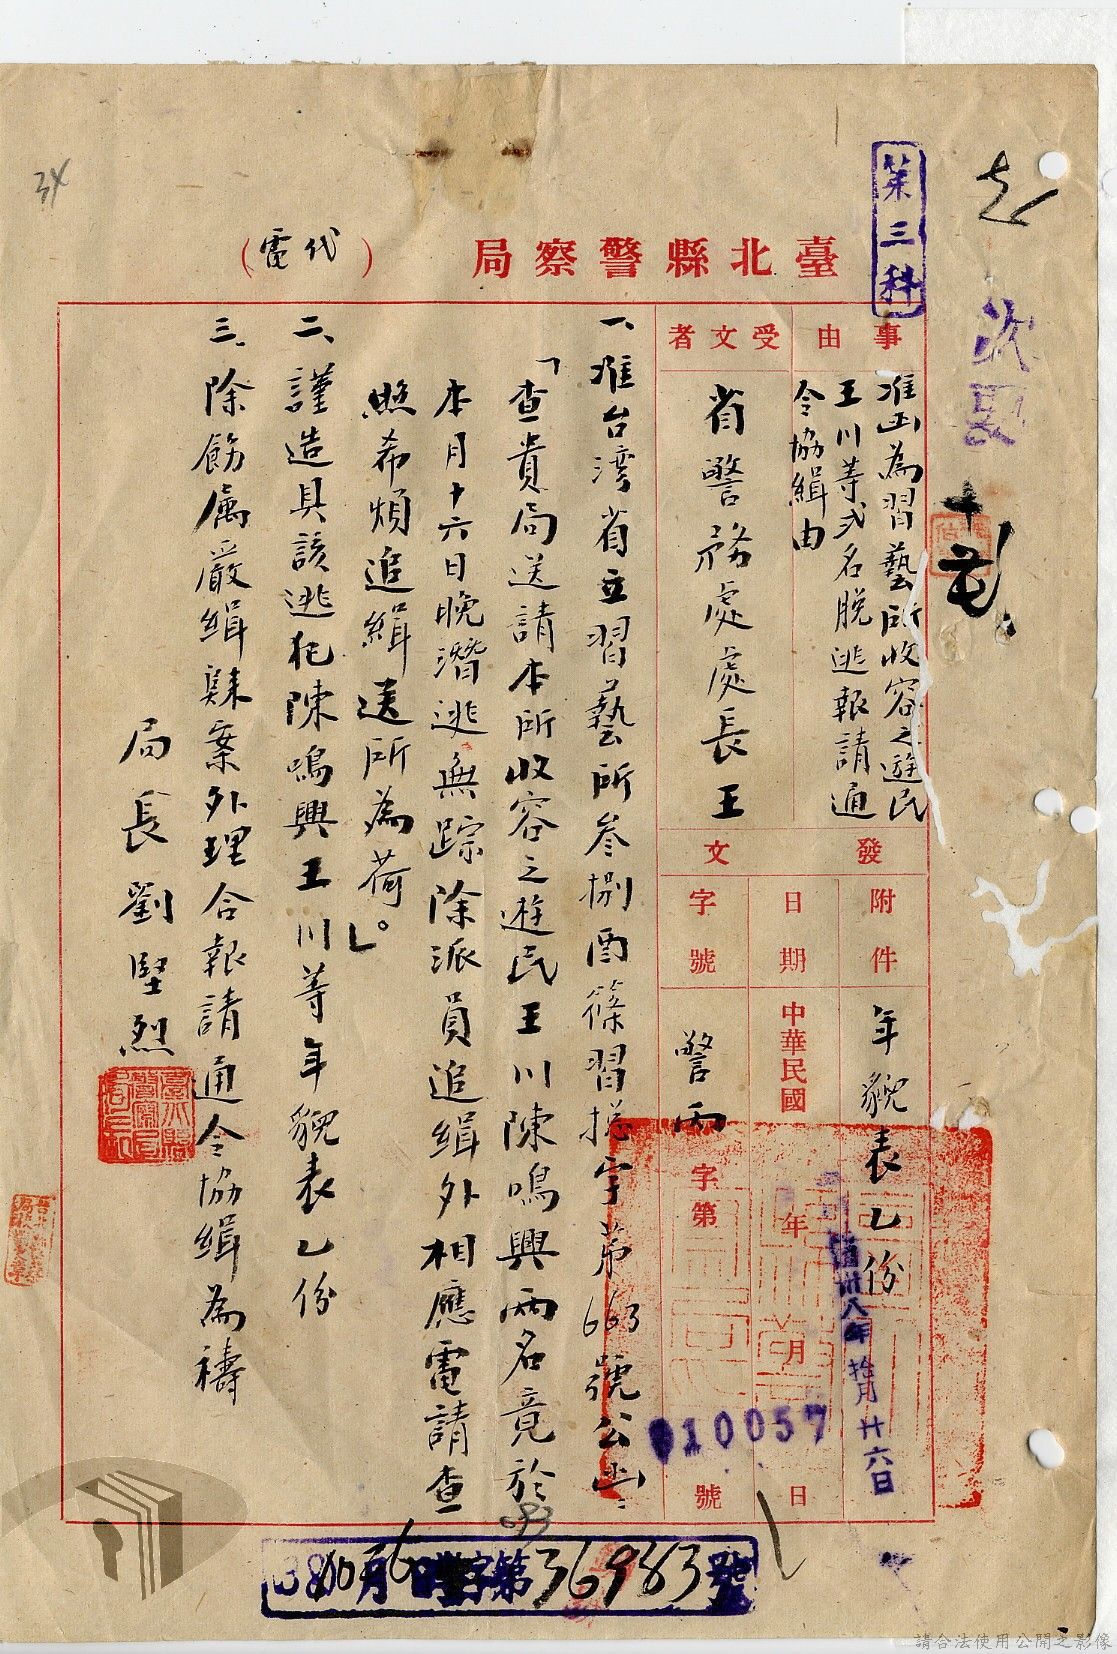 34
臺北縣警察局（代電）
第三科
事由
准函為習藝所收容之遊民
王川等弍名脫逃報請通
令協緝由
受文者
省警務處處長王
發文
附件
年貌表乙份
日期
中華民國 年 月 日
卅八年拾月廿六日
字號
警丙字第 號
010057
一、准台湾省立習藝所叁捌酉篠習總字第663號公函：
「查貴局送請本所收容之遊民王川陳鳴興兩名竟於
本月十六日晚潛逃無踪除派員追緝外相應電請查
照希煩追緝送所為荷。」
二、謹造具該逃犯陳鳴興王川等年貌表乙份
三、除飭屬嚴緝隸案外理合報請通令協緝為禱
局長劉堅烈
36983號
請合法使用公開之影像